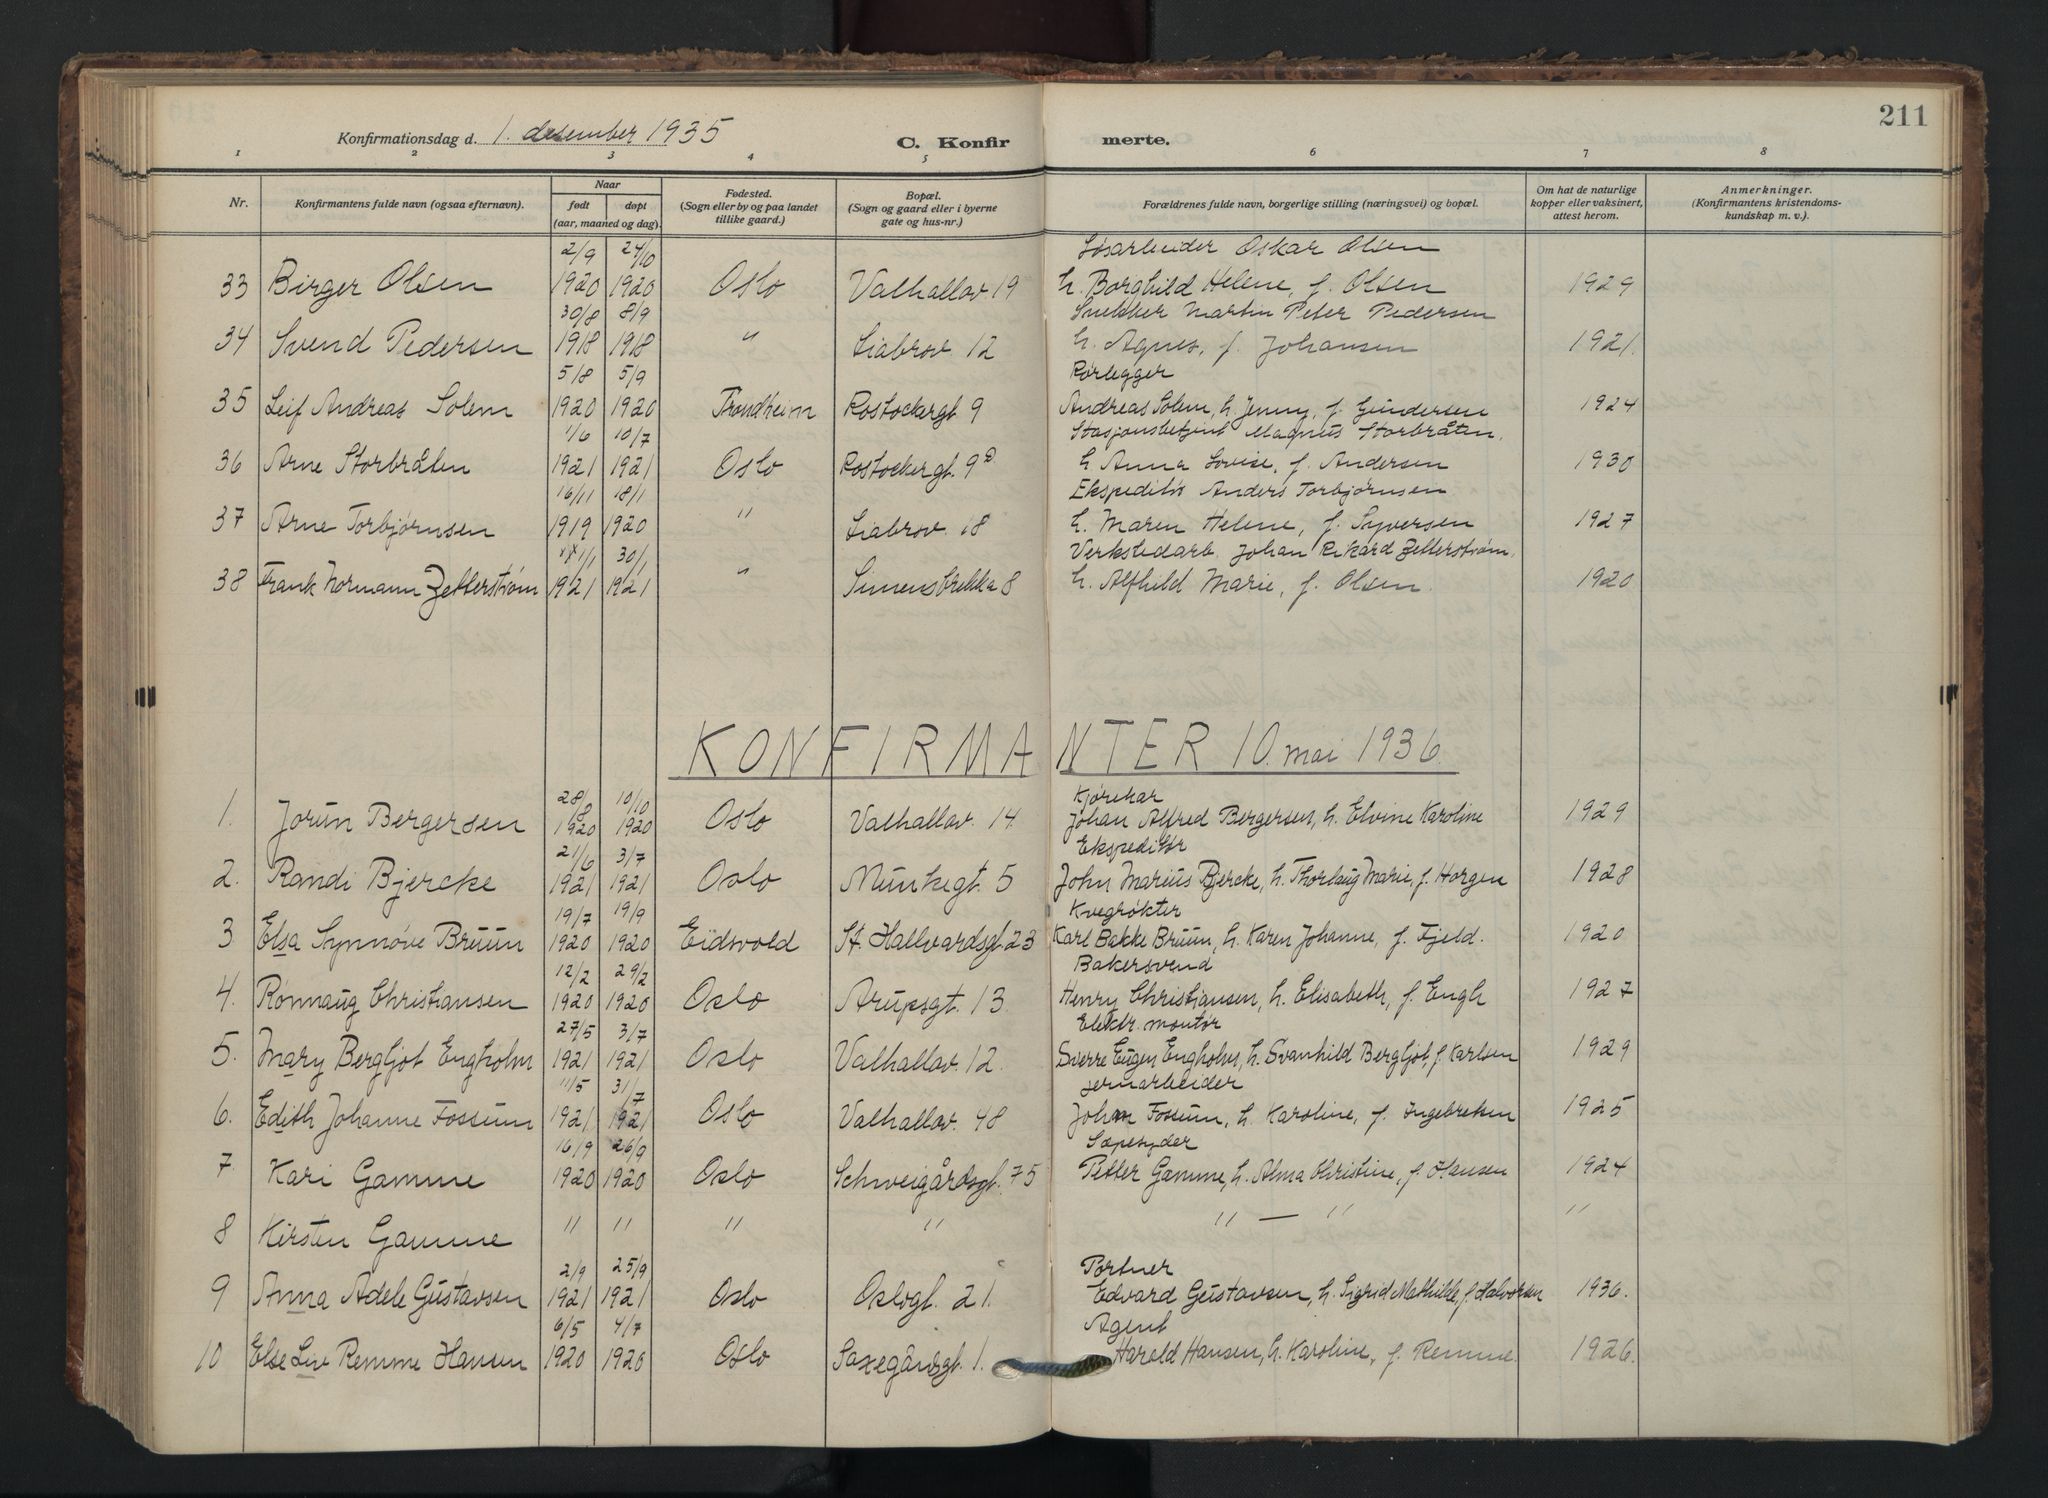 211
Konfirmationsdag d. 1. desember 1935 C. Konfirmerte.
1 2 3 4 5 6 7 8
Nr. Konfirmantens fulde navn (ogsaa efternavn). Naar født døpt (aar, maaned og dag) Fødested. (Sogn eller by og paa landet tillike gaard.) Bopæl. (Sogn og gaard eller i byerne gate og hus-nr.) Forældrenes fulde navn, borgerlige stilling (næringsvei) og bopæl. Om hat de naturlige kopper eller vaksinert, attest herom. Anmerkninger. (Konfirmantens kristendomskundskap m. v.)
2/9 24/10 Løsarbeider Oskar Olsen
33 Birger Olsen 1920 1920 Oslo Valhallav. 19 h. Borghild Helene, f. Olsen 1929
30/8 8/9 Snekker Martin Peter Pedersen
34 Svend Pedersen 1918 1918 " Liabrov. 12 h. Agnes, f. Johansen 1921.
5/8 5/9 Rørlegger
35 Leif Andreas Solem 1920 1920 Trondheim Rostockergt. 9 Andreas Solem, h. Jenny, f. Gundersen 1924
1/6 10/7 Stasjonsbetjent Magnus Storbråten.
36 Arne Storbråten 1921 1921 Oslo Rostockergt. 9 h. Anna Lovise, f. Andersen 1930
16/11 18/1 Ekspeditør Anders Torbjørnsen
37 Arne Torbjørnsen 1919 1920 " Liabrov. 18 h. Maren Helene, f. Syversen 1927
1/1 30/1 Verkstedarb. Johan Rikard Zetterstrøm.
38 Frank Normann Zetterstrøm 1921 1921 " Simensbrekka 8 h. Alfhild Marie, f. Olsen. 1920
KONFIRMANTER 10. mai 1936.
28/8 10/10 Kjørekar
1. Jorun Bergersen 1920 1920 Oslo Valhallav. 14. Johan Alfred Bergersen, h. Elvine Karoline 1929
21/6 3/7 Ekspeditør
2. Randi Bjercke 1921 1921 Oslo Munkegt. 5 John Marius Bjercke, h. Thorlaug Marie, f. Horgen 1928
19/7 19/9 Kvegrøkter
3 Elsa Synnøve Bruun 1920 1920 Eidsvold St. Hallvardsgt. 23 Karl Bakke Bruun, h. Karen Johanne, f. Fjeld. 1920
12/2 29/2 Bakersvend
4. Rønnaug Christiansen 1920 1920 Oslo Arupsgt. 13 Henry Christiansen, h. Elisabeth, f. Engh 1927
27/5 3/7 Elektr. montør
5. Mary Bergljot Engholm 1921 1921 Oslo Valhallav. 12. Sverre Eugen Engholm, h. Svanhild Bergljot, f. Karlsen 1929
11/5 31/7 Jernarbeider
6. Edith Johanne Fossum 1921 1921 Oslo Valhallav. 48 Johan Fossum, h. Karoline, f. Ingebretsen 1925
16/9 26/9 Sæpesyder
7 Kari Gamme 1920 1920 Oslo Schweigårdsgt. 75 Petter Gamme, h. Alma Christine, f. Hansen 1924
8 Kirsten Gamme " " " " " — " "
2/9 25/9 Portner
9 Anna Adele Gustavsen 1921 1921 Oslo Oslogt. 21. Edvard Gustavsen, h. Sigrid Mathilde, f. Halvorsen 1936.
6/5 4/7 Agent
10 Else Liv Remme Hansen 1920 1920 Oslo Saxegårdsgt. 1. Harald Hansen, h. Karoline, f. Remme. 1926.